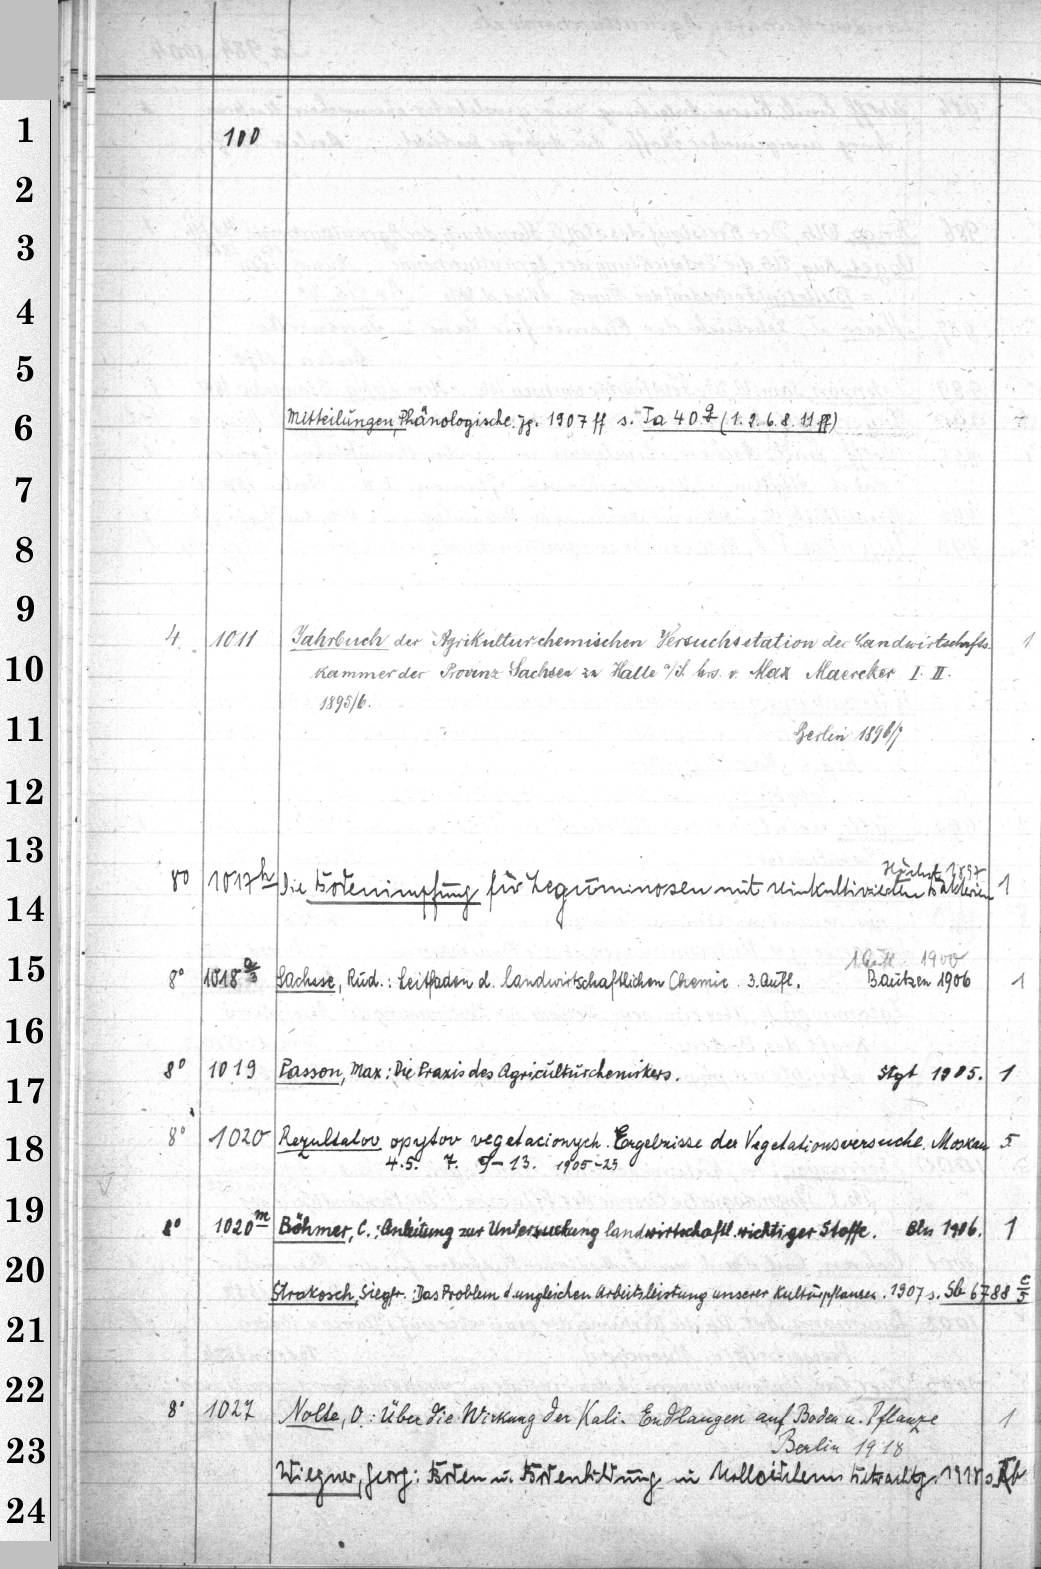 1
100
2
3
4
5
6
Mitteilungen, Phänologische. Jg. 1907 ff s. Ta 40 g (1. 2. 6. 8. 11 ff)
7
8
9
4 1011 Jahrbuch der Agrikulturchemischen Versuchsstation der Landwirtschafts- 1
10
kammer der Provinz Sachsen zu Halle a/S. hrs. v. Max Maercker I. II.
1895/6.
11
Berlin 1896/7
12
13
Höchst 1897
8° 1017 h Die Bodenimpfung für Leguminosen mit reinkultivierten Bakterien 1
14
15
1. Aufl. 1900
8° 1018 a/3 Sachse, Rud.: Leitfaden d. landwirtschaftlichen Chemie. 3. Aufl. Bautzen 1906 1
16
8° 1019 Passon, Max: Die Praxis des Agriculturchemikers. Stgt 1905. 1
17
8° 1020 Rezultatov opytov vegetacionych. Ergebnisse der Vegetationsversuche. Moskau 5
18
4.5. 7. 9-13. 1905-25
19
8° 1020 m Böhmer, C.: Anleitung zur Untersuchung landwirtschaftl. wichtiger Stoffe. Bln 1906. 1
20
Strakosch, Siegfr.: Das Problem d. ungleichen Arbeitsleistung unserer Kulturpflanzen. 1907 s. Sb 6788 c/5
21
22
8° 1027 Nolte, O.: Über die Wirkung der Kali-Endlaugen auf Boden u. Pflanze 1
23
Berlin 1918
Wiegner, Georg: Boden u. Bodenbildung in kolloidchem. Betrachtg. 1918 s.
24